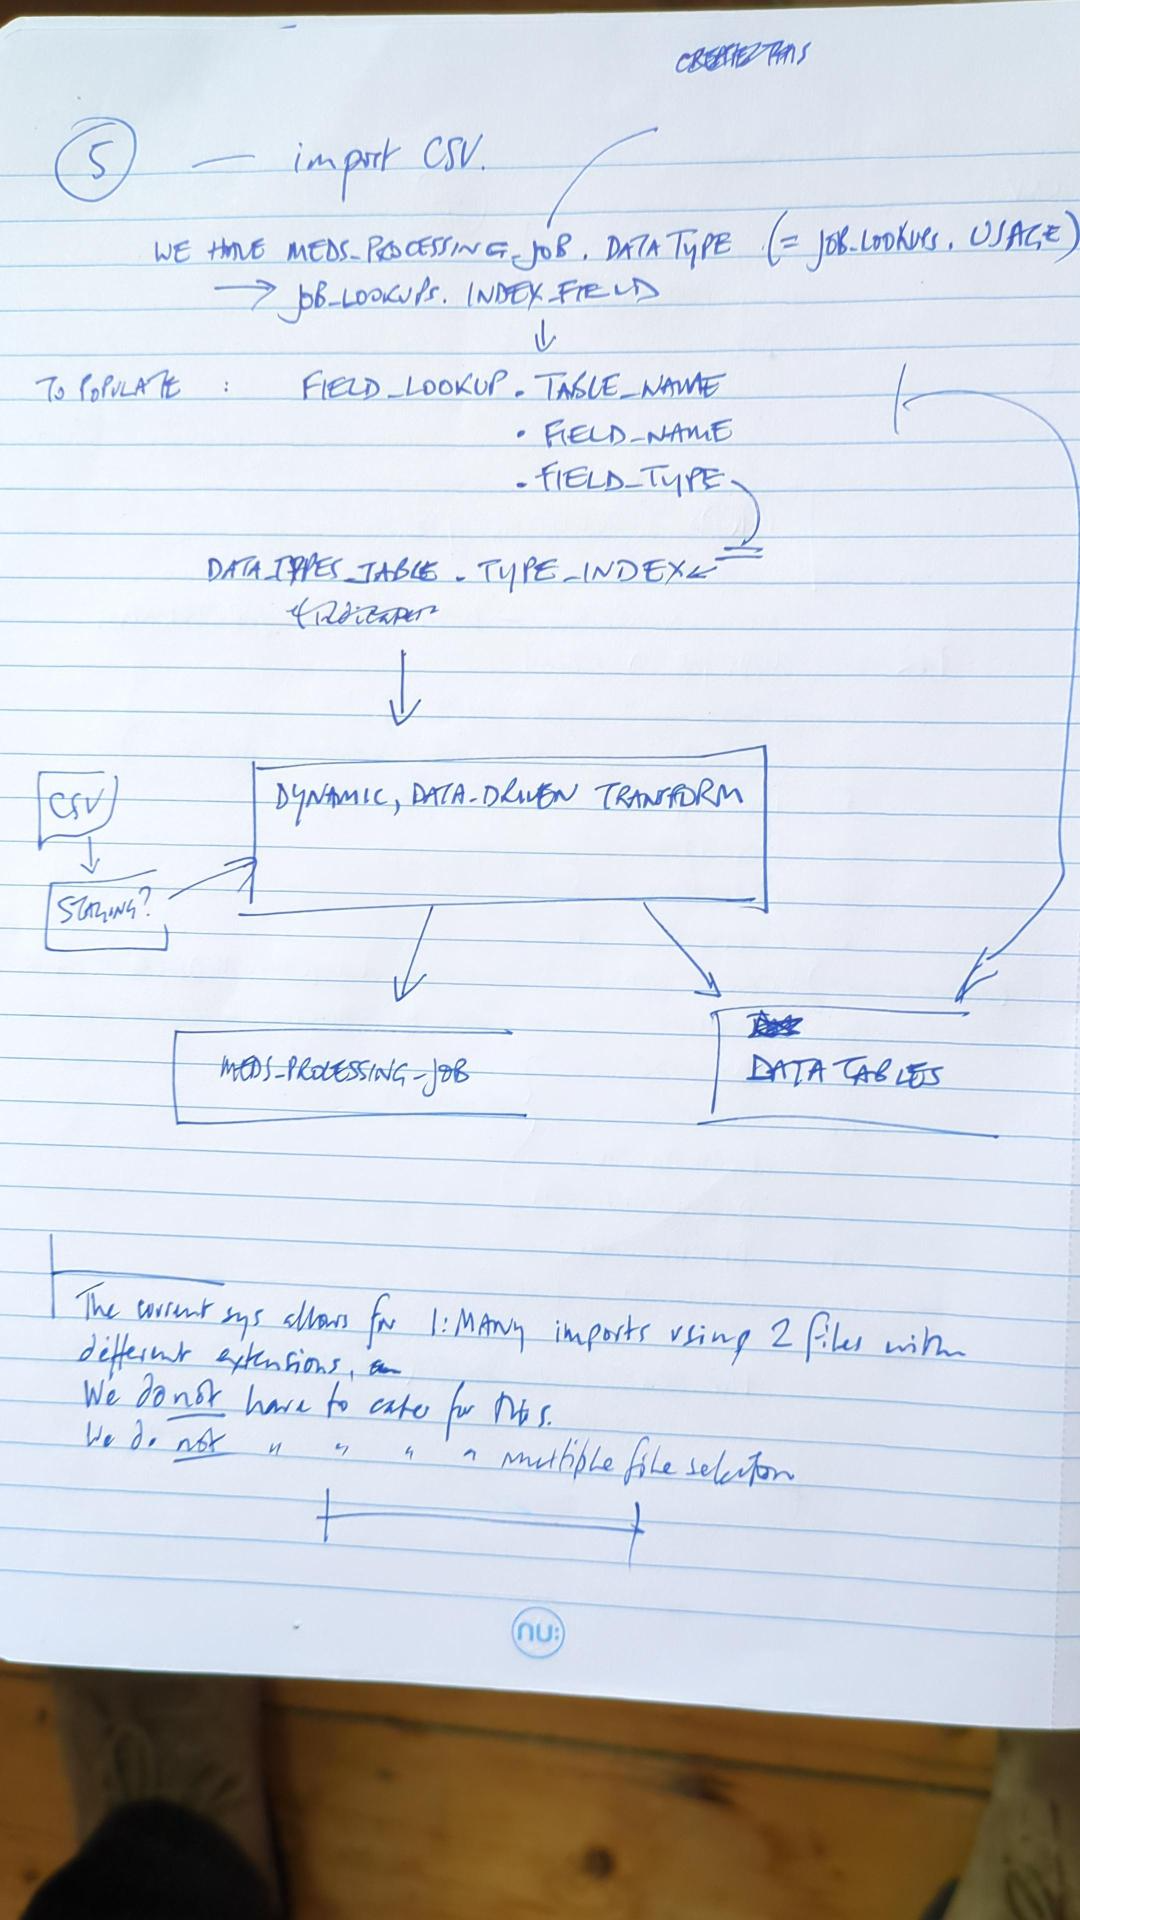 5 — import CSV.
WE HAVE MEDS_PROCESSING_JOB. DATA TYPE (= JOB_LOOKUPS. USAGE)
→ JOB_LOOKUPS. INDEX_FIELD
↓
TO POPULATE : FIELD_LOOKUP. TABLE_NAME
. FIELD_NAME
. FIELD_TYPE
DATA_TYPES_TABLE. TYPE_INDEX
DYNAMIC, DATA-DRIVEN TRANSFORM
CSV
STAGING?
MEDS_PROCESSING_JOB
DATA TABLES
The current sys allows for 1:MANY imports using 2 files with
different extensions,
We do not have to cater for this.
We do not " " " " multiple file selection
nu: